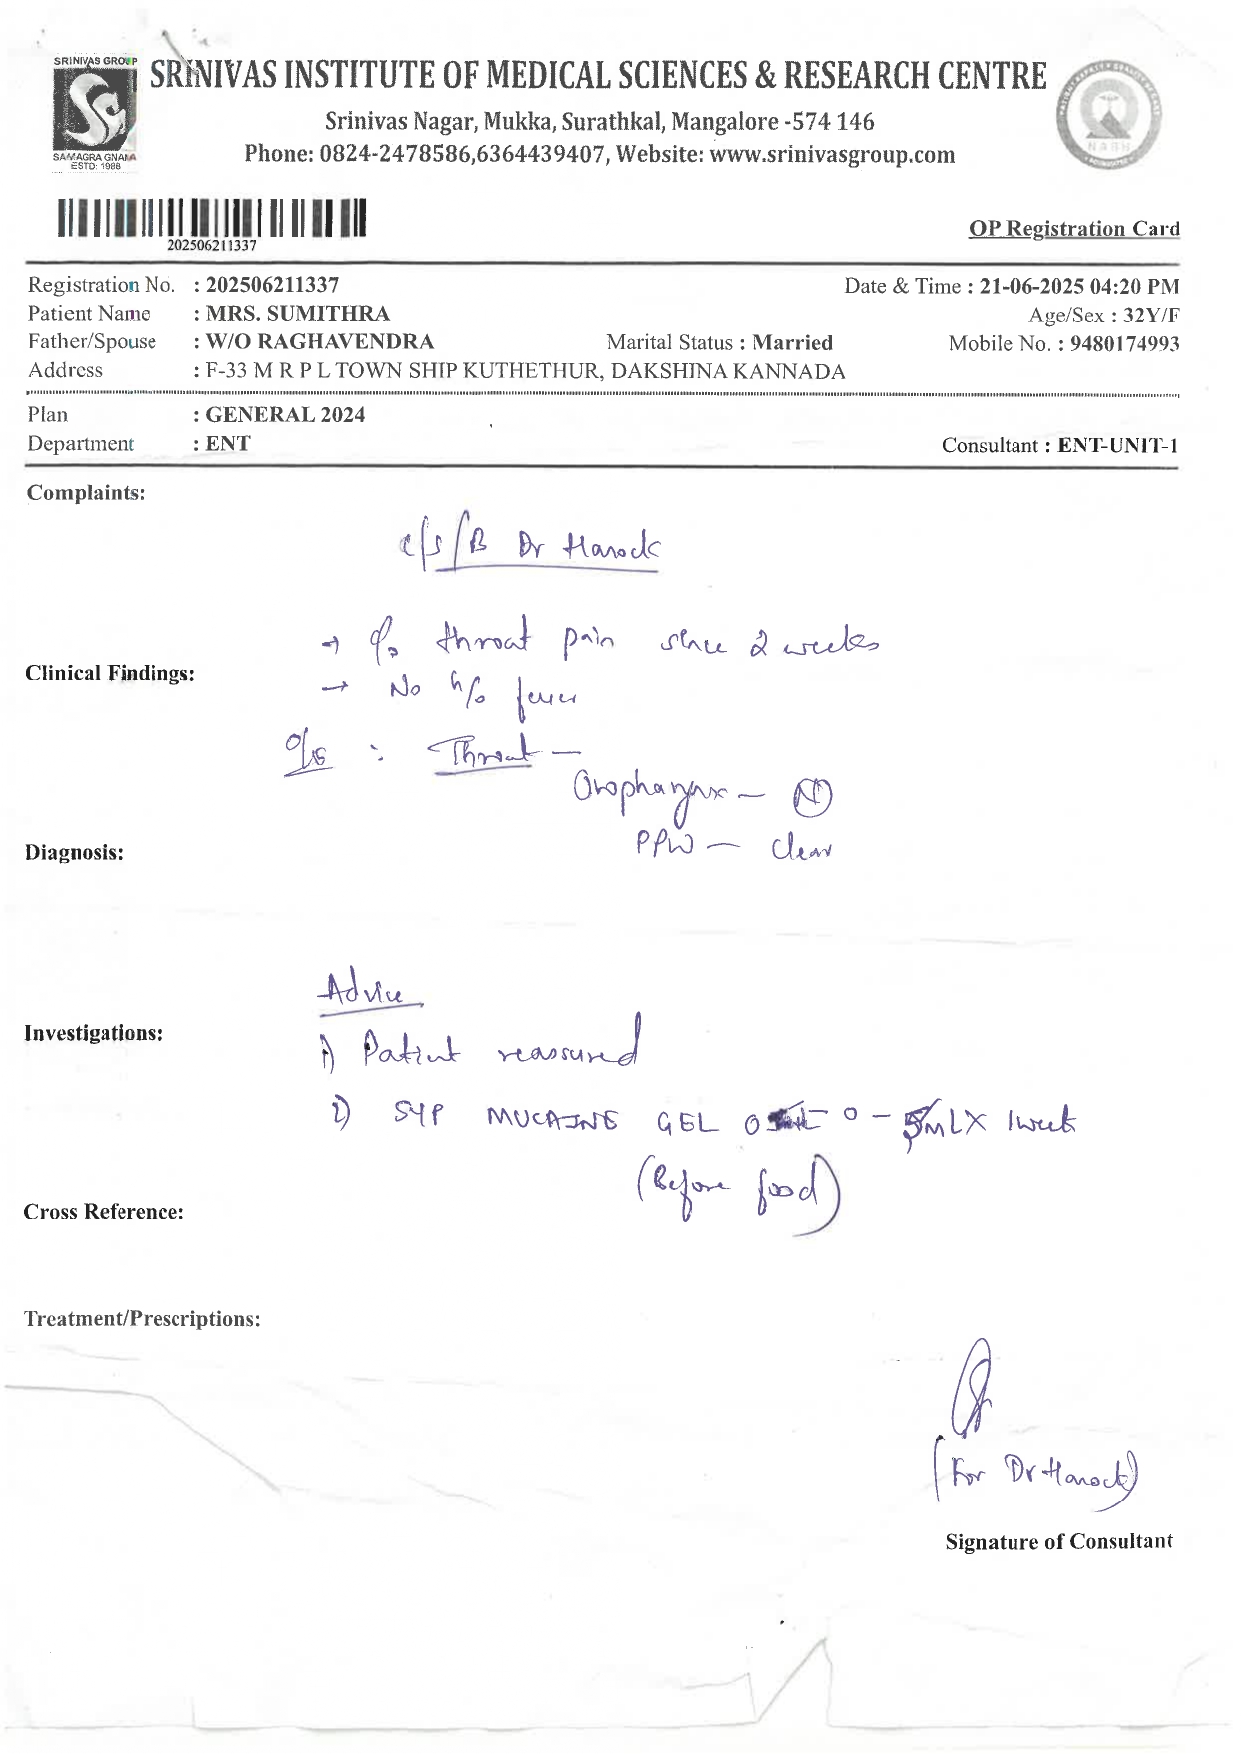 SRINIVAS GROUP
SAMAGRA GNANA
ESTD: 1988
SRINIVAS INSTITUTE OF MEDICAL SCIENCES & RESEARCH CENTRE
Srinivas Nagar, Mukka, Surathkal, Mangalore -574 146
Phone: 0824-2478586,6364439407, Website: www.srinivasgroup.com
NABH
202506211337
OP Registration Card
Registration No. : 202506211337 Date & Time : 21-06-2025 04:20 PM
Patient Name : MRS. SUMITHRA Age/Sex : 32Y/F
Father/Spouse : W/O RAGHAVENDRA Marital Status : Married Mobile No. : 9480174993
Address : F-33 M R P L TOWN SHIP KUTHETHUR, DAKSHINA KANNADA
Plan : GENERAL 2024
Department : ENT Consultant : ENT-UNIT-1
Complaints:
c/s/B Dr Hanock
→ c/o throat pain since 2 weeks
Clinical Findings:
→ No h/o fever
O/E : Throat —
Oropharynx — (N)
PPW — Clear
Diagnosis:
Advice
Investigations:
1) Patient reassured
2) SYP MUCAINE GEL 0 - 0 - 5ML X 1 week
(Before food)
Cross Reference:
Treatment/Prescriptions:
(For Dr Hanock)
Signature of Consultant